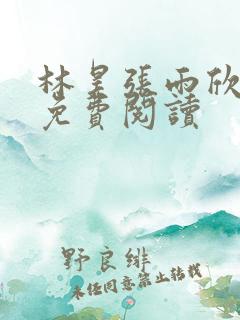 林昊張雨欣
免費閱讀
野良緋
未經同意禁止轉載